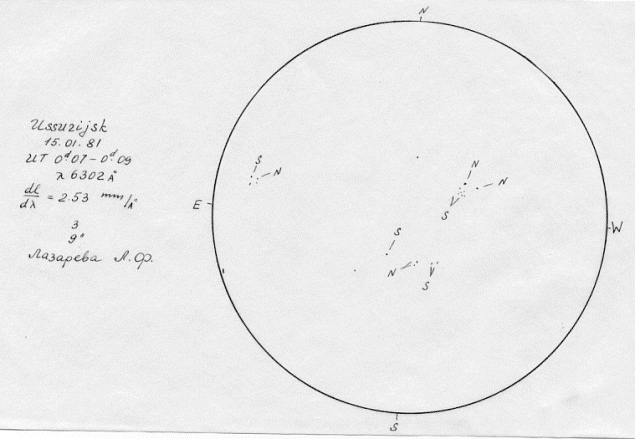 Ussurijsk
15.01.81
UT 0ᵈ07 – 0ᵈ09
λ 6302 Å
dl/dλ = 2.53 mm/Å
3
9"
Лазарева Л.Ф.
N
S
N
N
N
E
S
S
W
N
S
S